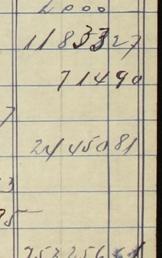 2000
1183327
71490
7
2445081
3
5